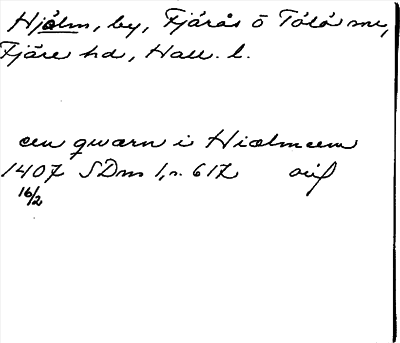 Hjälm, by, Fjärås o Tölö snr,
Fjäre hd, Hall. l.
een qwærn i Hiælmeem
1407 SDns 1, n. 617 avs
16/2